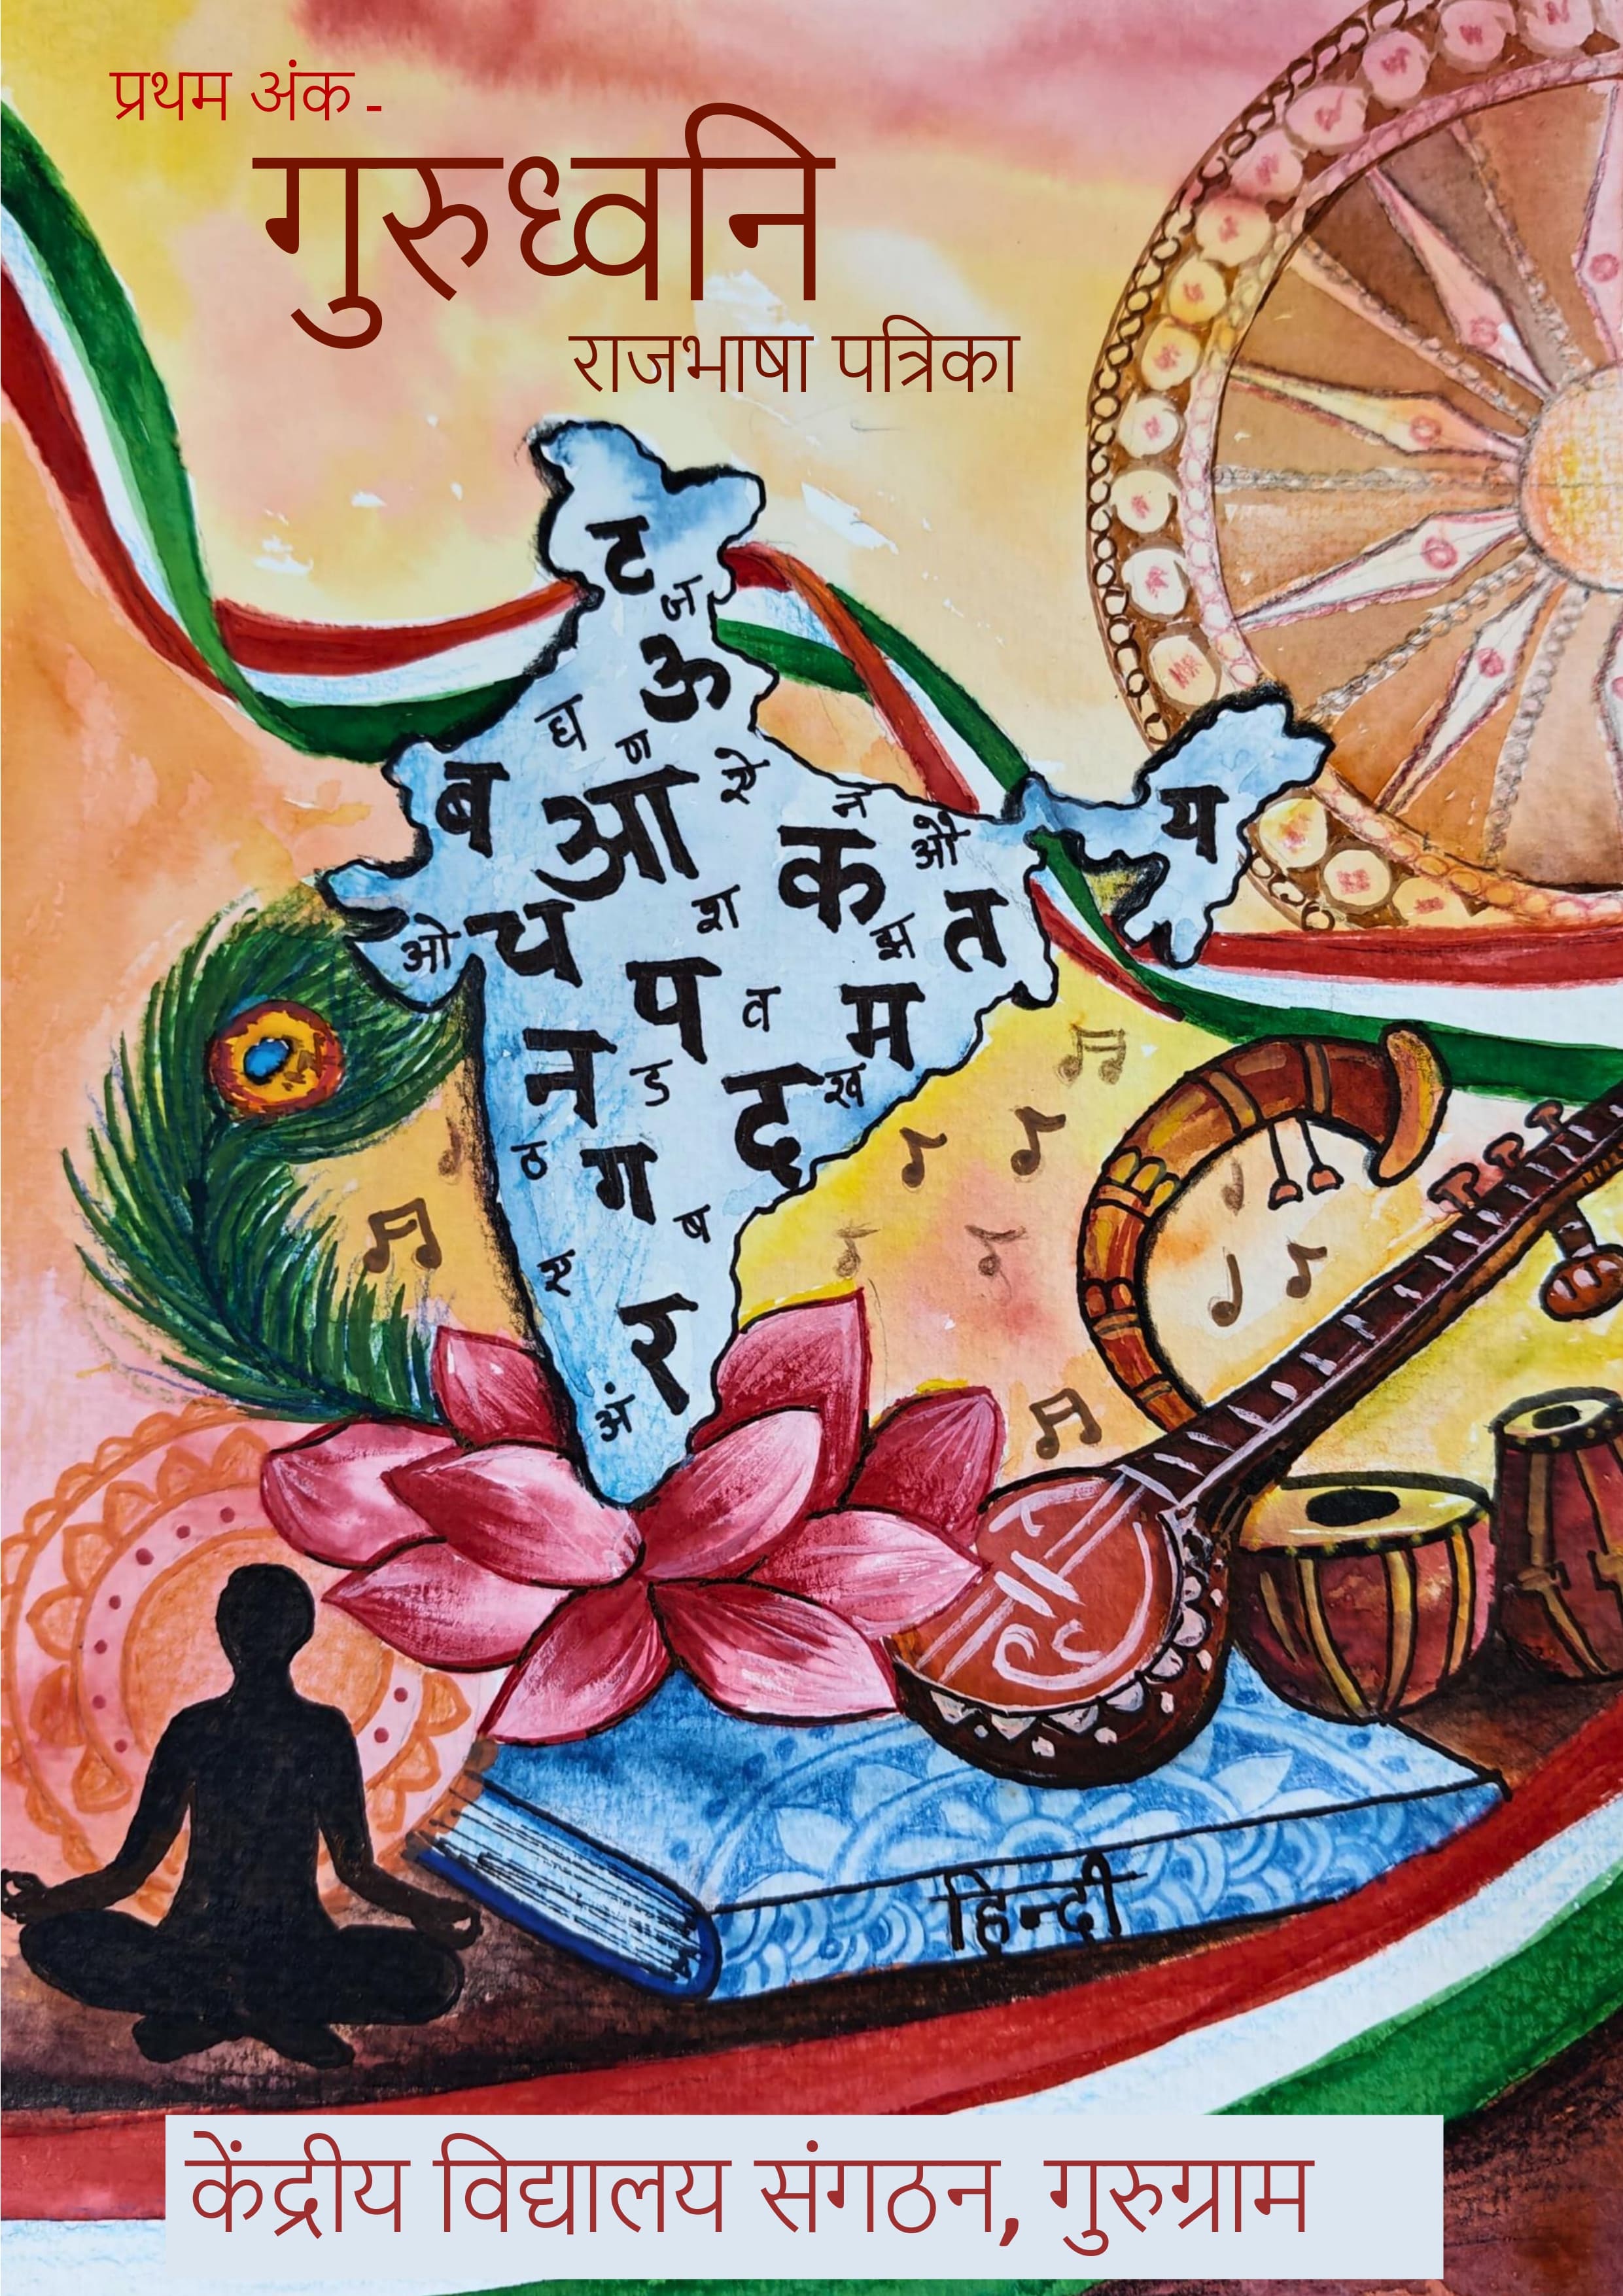 प्रथम अंक -
गुरुध्वनि
राजभाषा पत्रिका
ट
ज
ऊ
घ
ण
ब
आ
ऐ
न
क
औ
य
ओ
च
श
झ
त
प
व
म
न
ड
द
ख
ठ
ग
ष
र
अं
हिन्दी
केंद्रीय विद्यालय संगठन, गुरुग्राम